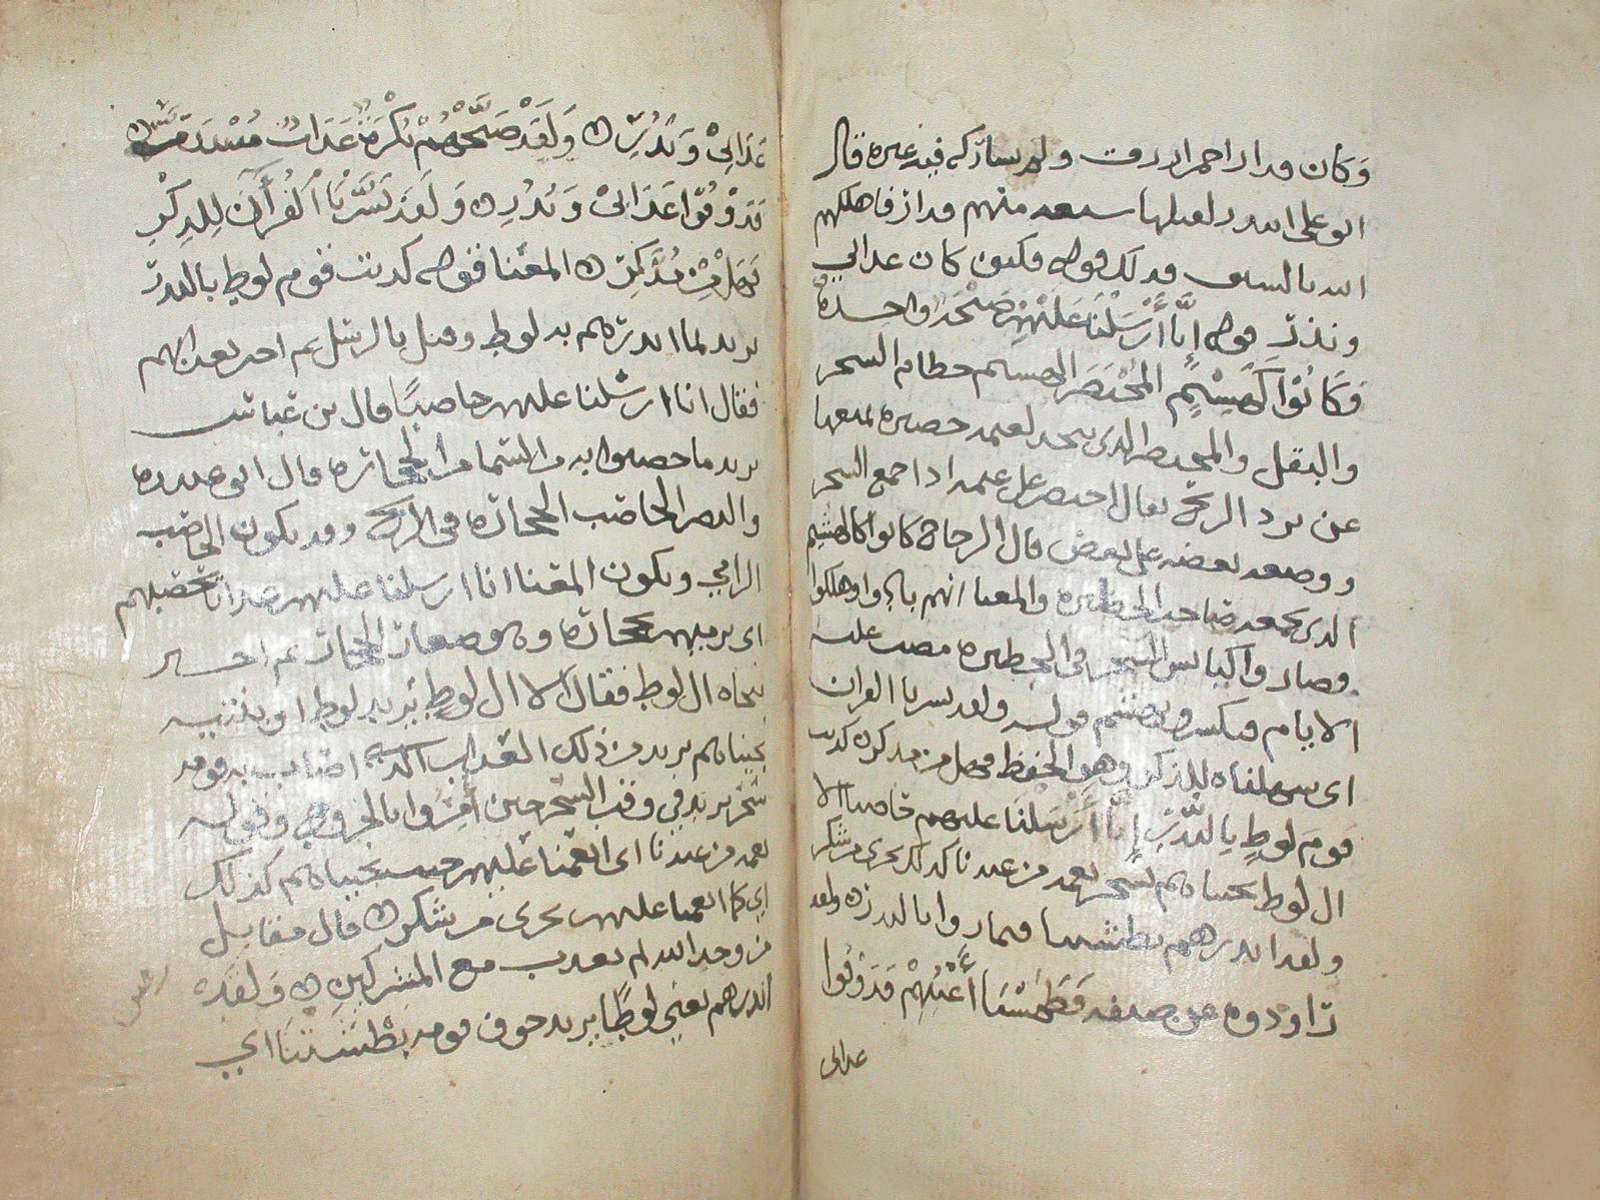 وكان قدار احمر ازرق ولم يشاركه فيه غيره قال
ابو علي اشد لفعلها سعد منهم قدار فاهلكهم
الله بالسيف فذلك قوله فكيف كان عذابي
ونذر قوله إنا أرسلنا عليهم صيحة واحدة
فكانوا كهشيم المحتضر الهشيم حطام الشجر
والبقل والمحتظر الذي يتخذ لغنمه حصيره تمنعها
عن برد الريح يقال احتضر على غنمه اذا جمع الشجر
ووضعه بعضه على بعض قال الزجاج كانوا كالهشيم
الذي يجمعه صاحب الحظيره والمعنا انهم بادوا وهلكوا
وصاروا كيابس الشجر في الحظيره مضت عليه
الايام فتكسر وتهشم قوله ولقد يسرنا القران
اي سهلناه للذكر وهو الحفظ فهل من مدكر كذبت
قوم لوط بالنذر إنا أرسلنا عليهم حاصبا الا
ال لوط نجيناهم بسحر نعمه من عندنا كذلك نجزي من شكر
ولقد انذرهم بطشتنا فتماروا بالنذر ولقد
راودوه عن ضيفه فطمسنا أعينهم فذوقوا
عذابي
عذابي ونذر ولقد صبحهم بكرة عذاب مستقر
فذوقوا عذابي ونذر ولقد يسرنا القرآن للذكر
فهل من مدكر المعنا قوله كذبت قوم لوط بالنذر
يريد لما انذرهم به لوط وقيل بالرسل ثم اخبر بعذابهم
فقال انا ارسلنا عليهم حاصبا قال بن عباس
يريد ما حصبوا به من السما من الحجاره قال ابو عبيده
والنضر الحاصب الحجاره في الريح وقد يكون الحاصب
الرامي ويكون المعنا انا ارسلنا عليهم عذابا يحصبهم
اي يرميهم بحجاره ثم اخبر
بنجاه ال لوط فقال الا ال لوط يريد لوطا وبنتيه
نجيناهم يريد من ذلك العذاب الذي اصاب به قومه
بسحر يريد في وقت السحر حين أمروا بالخروج وقوله
نعمه من عندنا اي انعمنا عليهم حيث نجيناهم كذلك
اي كما انعمنا عليهم نجزي من شكر قال مقاتل
من وحد الله لم يعذب مع المشركين ولقد
انذرهم يعني لوطا يريد خوف قومه بطشتنا اي